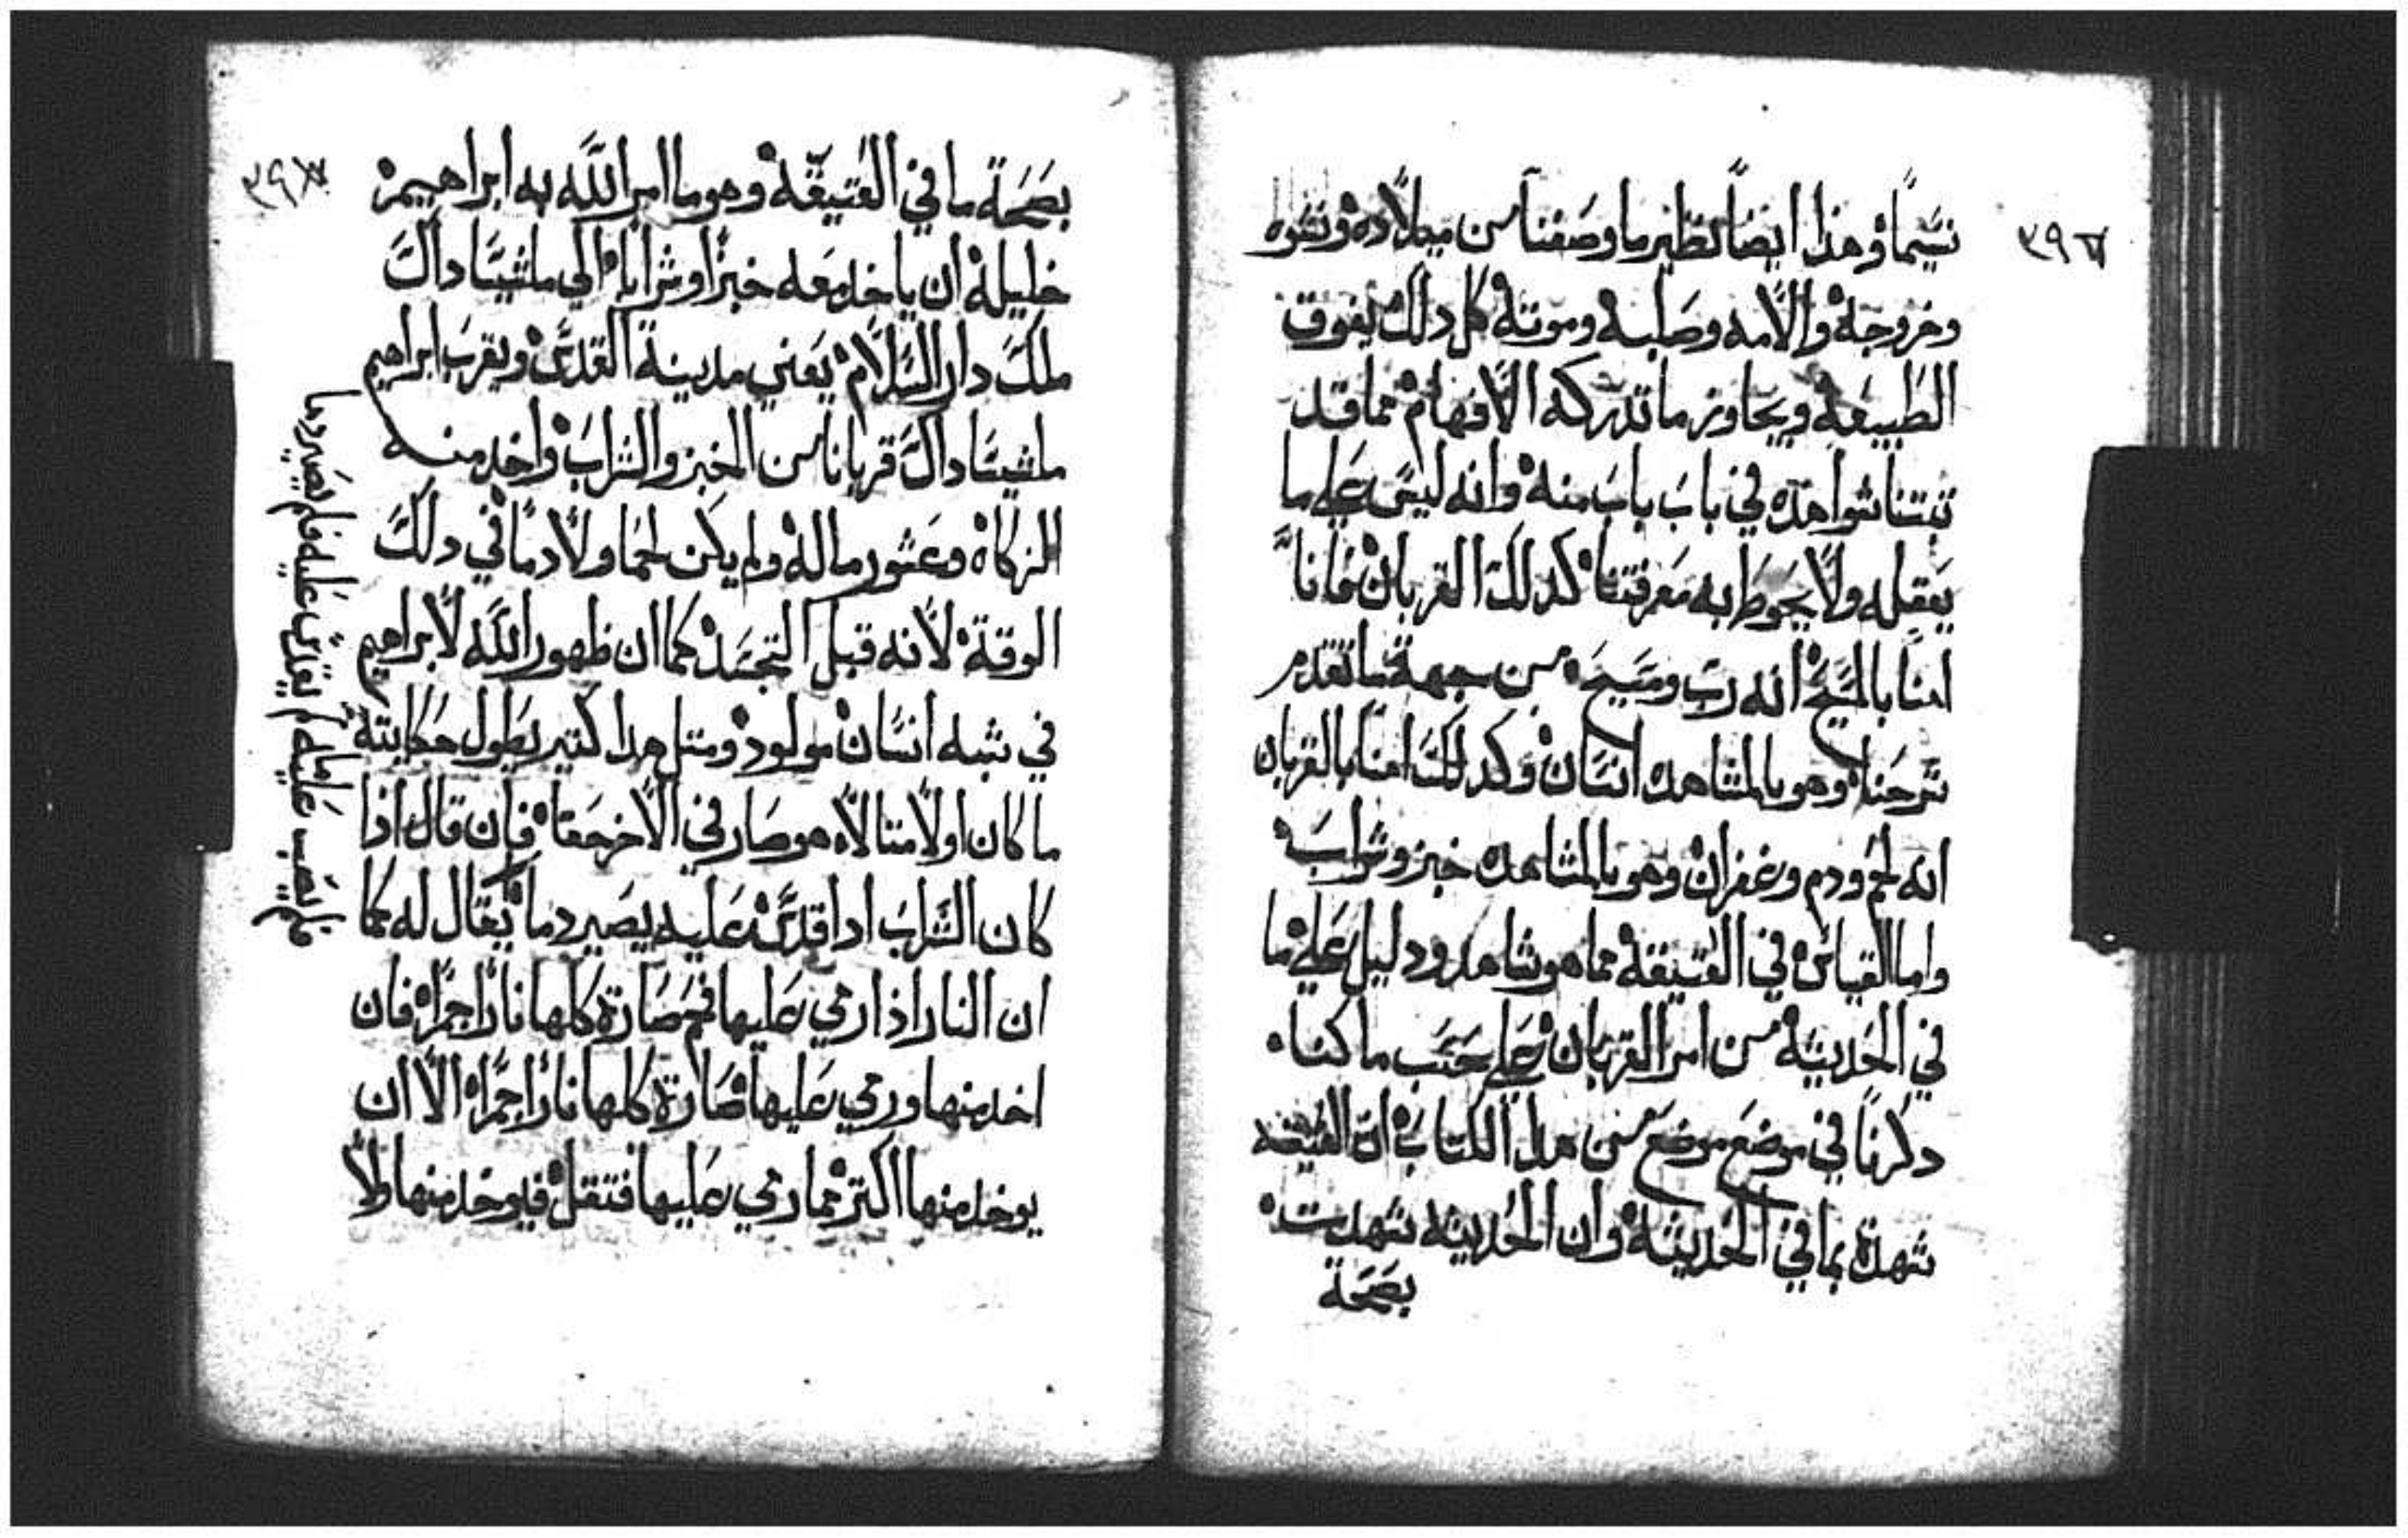 ٣٩٦
نسيما وهذا ايضا نظير ما وصفنا من ميلاده ونشوه
وخروجه والامه وصلبه وموته كل دلك يفوق
الطبيعه ويجاوز ما تدركه الافهام مما قد
تبتنا شواهده في باب باب منه وانه ليس علي ما
يعقله ولا يحوط به معرفتنا كدلك القربان فاننا
امنا بالمسيح انه رب ومسيح من جهة ما تقدم
شرحنا وهو بالمشاهده انسان وكدلك امنا بالقربان
انه لحم ودم وغفران وهو بالمشاهده خبز وشراب
واما القياس في العتيقه مما هو شاهد ودليل علي ما
في الحديثة من امر القربان علي حسب ما كنا
دكرنا في موضع موضع من هدا الكتاب ان العتيقه
شهدة بما في الحديثة وان الحديثه شهدت
بصحة
٣٩٧
بصحة ما في العتيقة وهو ما امر الله به ابراهيم
خليله ان ياخد معه خبزا وشرابا الي ملشيسا داك
ملك دار السلام يعني مدينة القدس ويقرب ابراهيم
ملشيسا داك قربانا من الخبز والشراب واخد منه
الزكاة وعشور ماله ولم يكن لحما ولا دما في دلك
الوقة لانه قبل التجسد كما ان ظهور الله لابراهيم
في شبه انسان مولود ومتل هدا كتير يطول حكايته
ما كان اولا متالا هو صار في الاخر حقا فان قال اذا
كان الشراب ادا قدس عليه يصير دما يقال له كما
ان النار اذا رمي عليها فحم صارة كلها نارا جمرا فان
اخد منها ورمي عليها صارة كلها نارا جمرا الا ان
يوخد منها اكتر مما رمي عليها فتقل فيوخد منها ولا